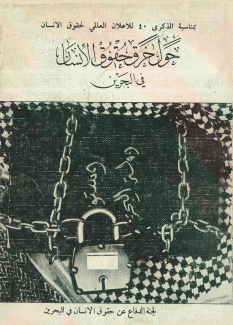 بمناسبة الذكرى ٤٠ للاعلان العالمي لحقوق الانسان
حول خرق حقوق الانسان
في البحرين
لجنة الدفاع عن حقوق الانسان في البحرين